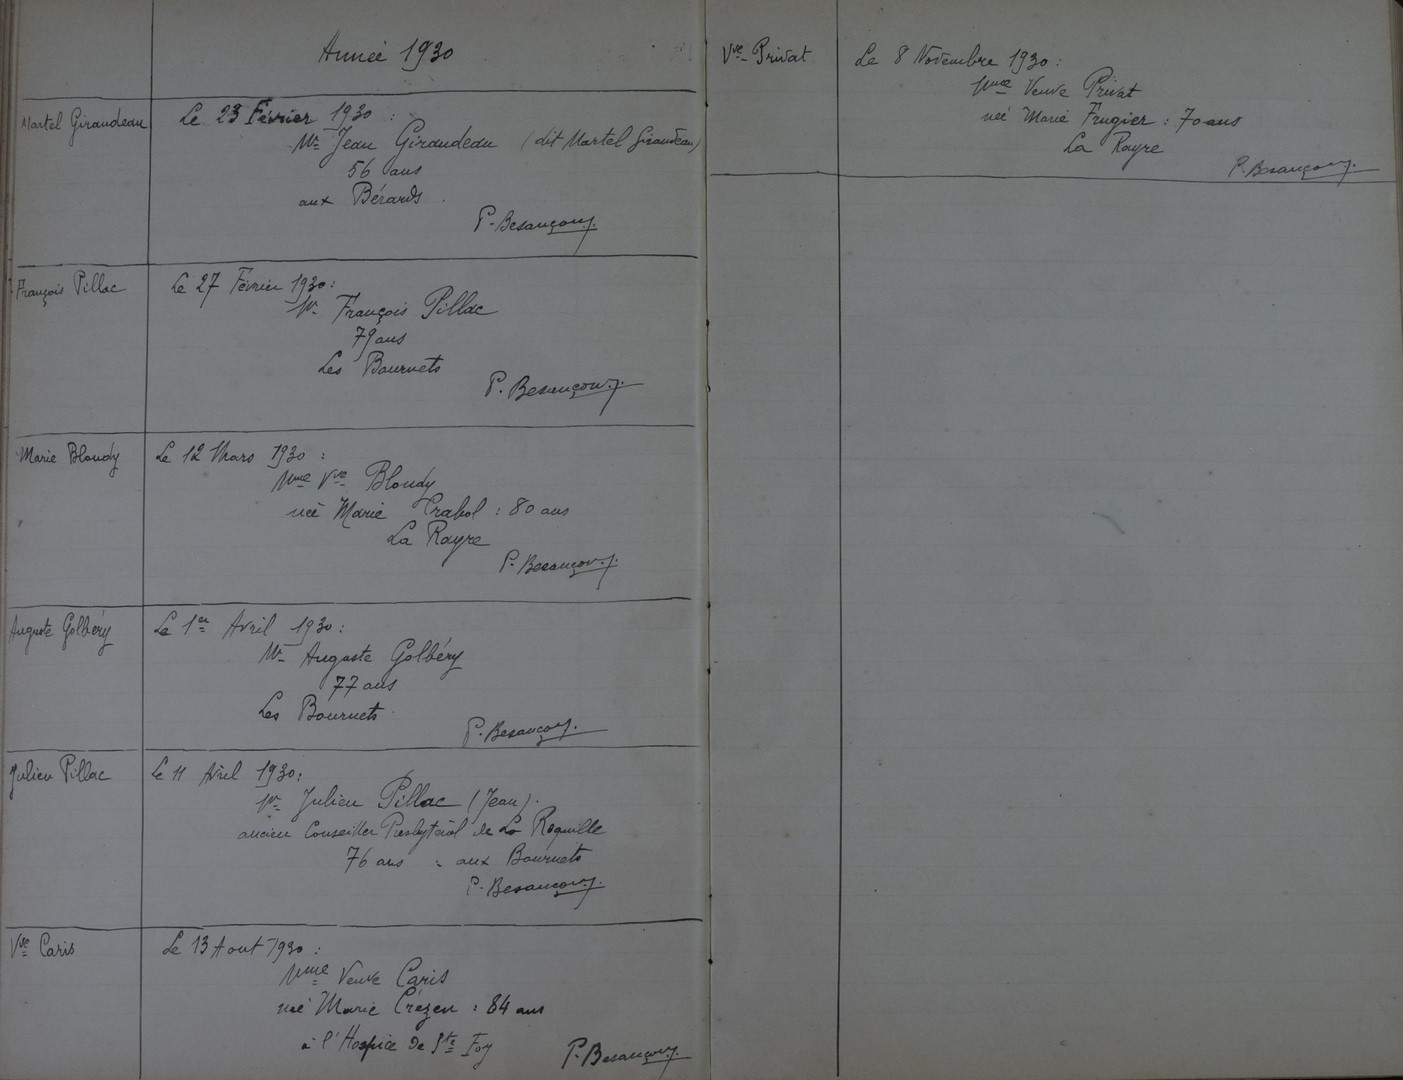 Année 1930
Martel Giraudeau
Le 23 Février 1930 :
Mr Jean Giraudeau (dit Martel Giraudeau)
56 ans
aux Bérards
P. Besançon
François Pillac
Le 27 Février 1930 :
Mr François Pillac
79 ans
Les Bournets
P. Besançon
Marie Bloudy
Le 12 Mars 1930 :
Mme Vve Bloudy
née Marie Crabol : 80 ans
La Rayre
P. Besançon
Auguste Golbéry
Le 1er Avril 1930 :
Mr Auguste Golbéry
77 ans
Les Bournets
P. Besançon
Julien Pillac
Le 11 Avril 1930 :
Mr Julien Pillac (Jean).
ancien Conseiller Presbytéral de La Roquille
76 ans : aux Bournets
P. Besançon
Vve Caris
Le 13 Aout 1930 :
Mme Veuve Caris
née Marie Crézen : 84 ans
à l'Hospice de Ste Foy
P. Besançon
Vve Privat
Le 8 Novembre 1930 :
Mme Veuve Privat
née Marie Frugier : 70 ans
La Rayre
P. Besançon